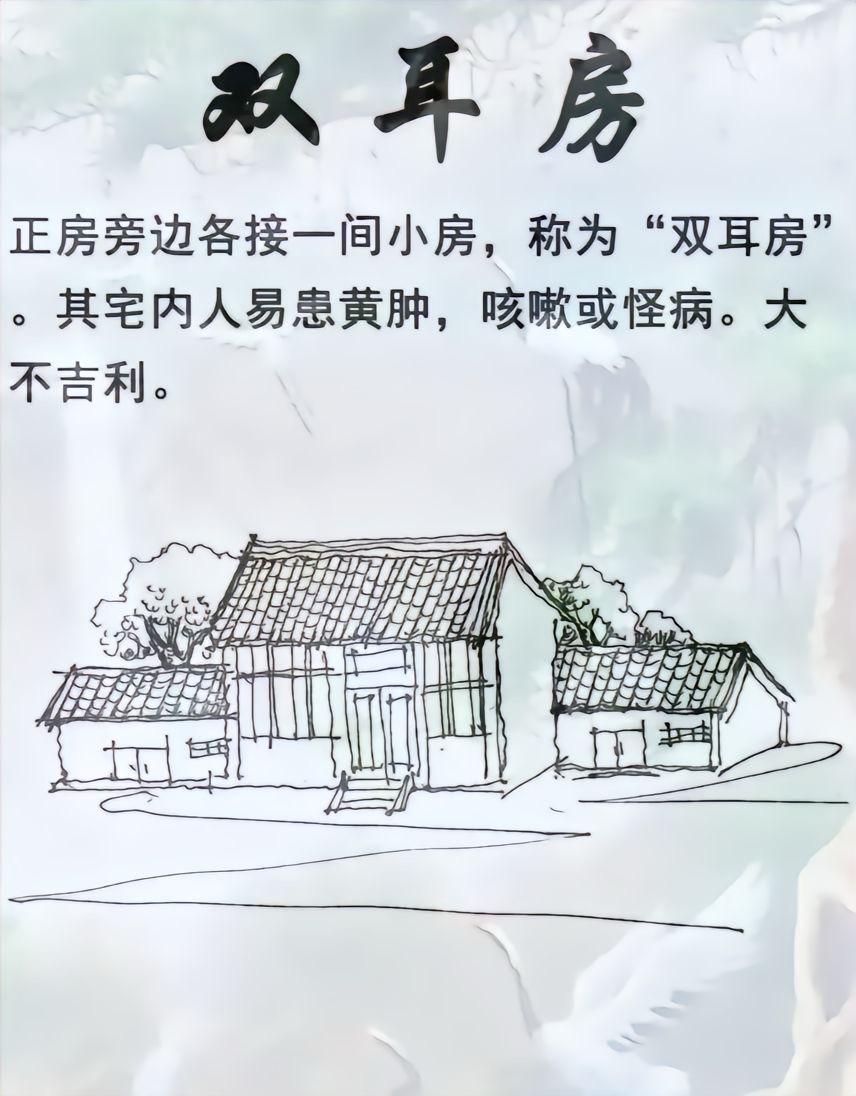 双耳房
正房旁边各接一间小房，称为“双耳房”
。其宅内人易患黄肿，咳嗽或怪病。大
不吉利。